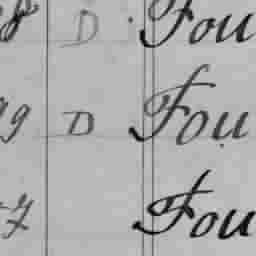 8 D Fou
99 D Fou
7 Fou